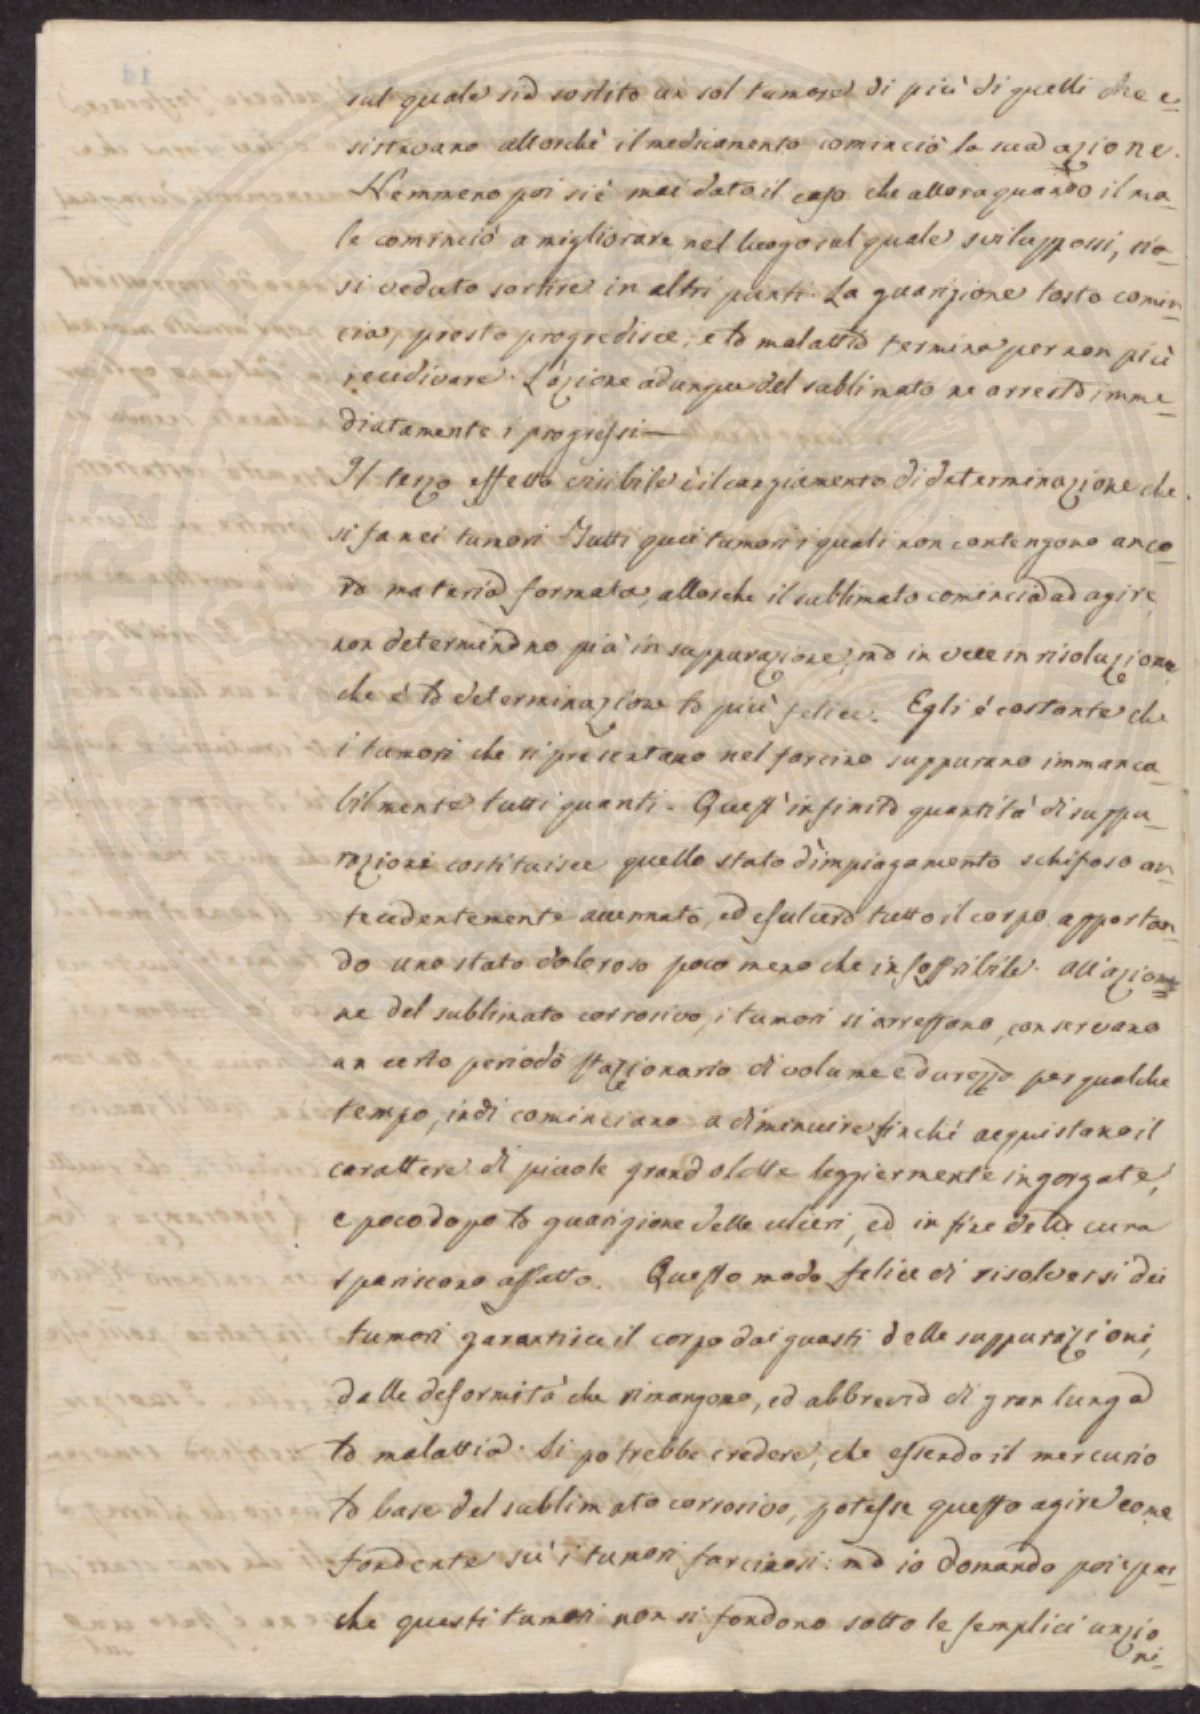 sul quale sia sortito un sol tumore di più di quelli che e-
sistevano allorchè il medicamento cominciò la sua azione.
Nemmeno poi si è mai dato il caso che allora quando il ma-
le cominciò a migliorare nel luogo sul quale svilupossi, sia-
si veduto sortire in altri punti. La guarizione tosto comin-
cia, presto progredisce, e la malattia termina per non più
recedivare. L'azione adunque del sublimato ne arresta imme-
diatamente i progressi—
Il terzo effetto visibile è il cangiamento di determinazione che
si fa nei tumori. Tutti quei tumori i quali non contengono anco-
ra materia formata, allorche il sublimato comincia ad agire
non determinano più in suppurazione, ma in vece in risoluzione
che è la determinazione la più felice. Egli è costante che
i tumori che si presentano nel farcino suppurano immanca-
bilmente tutti quanti. Quest' infinita quantità di suppu-
razioni costituisce quello stato d'impiagamento schifoso an-
tecedentemente accennato, ed esulcera tutto il corpo apportan-
do uno stato doloroso poco meno che insoffribile. All'azio-
ne del sublimato corrosivo, i tumori si arrestano, conservano
un certo periodo stazionario di volume e durezza per qualche
tempo, indi cominciano a diminuire finchè acquistano il
carattere di picole grandolette leggiermente ingorgate,
e poco dopo la guarigione delle ulceri, ed in fine della cura
spariscono affatto. Questo modo felice di risolversi dei
tumori garantisce il corpo dai guasti delle suppurazioni,
dalle deformità che rimangono, ed abbrevia di gran lunga
la malattia. Si potrebbe credere, che essendo il mercurio
la base del sublimato corrosivo, potesse questo agire come
fondente sù i tumori farcinosi: ma io domando poi per-
che questi tumori non si fondono sotto le semplici unzio
ni-